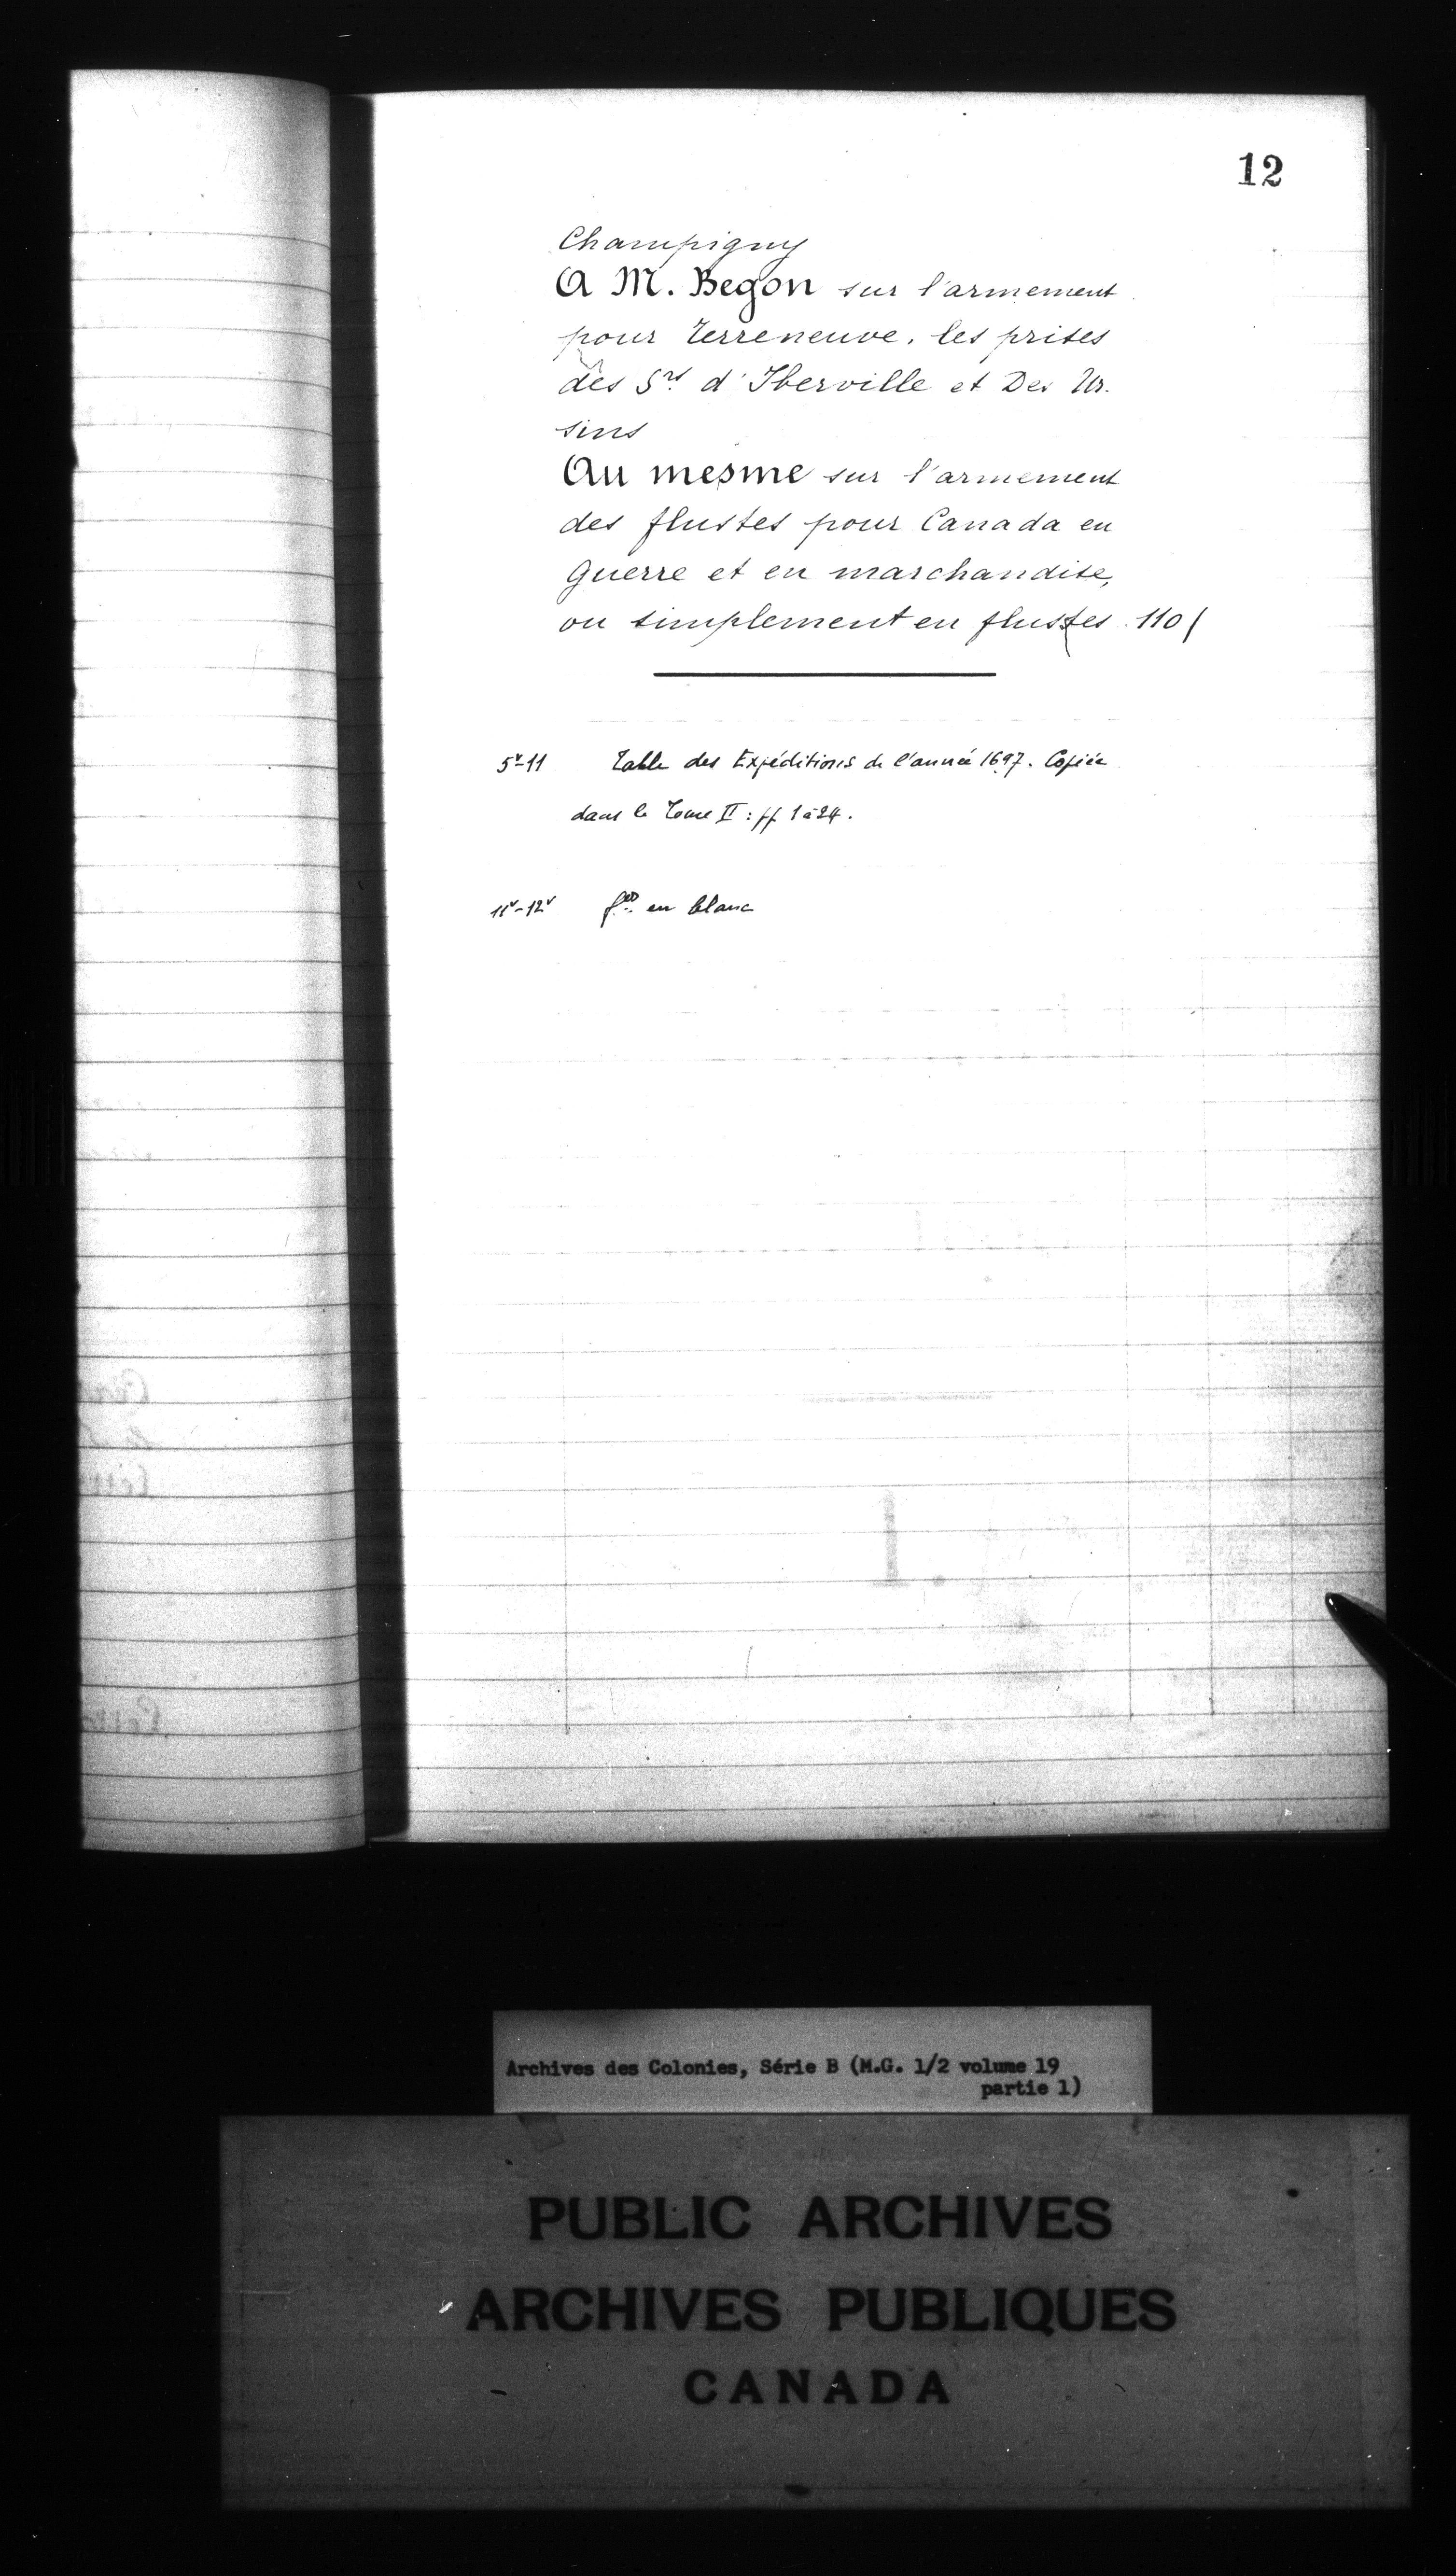 12
Champigny
A M. Begon sur l'armement
pour Terreneuve, les prises
des Srs d'Iberville et Des Ur-
sins
Au mesme sur l'armement
des flustes pour Canada en
Guerre et en marchandise,
ou simplement en flustes. 110
5v-11 Table des Expéditions de l'année 1697. Copiée
dans le Tome II: ff 1 à 24.
11v-12v fos en blanc
Archives des Colonies, Série B (M.G. 1/2 volume 19
partie 1)
PUBLIC ARCHIVES
ARCHIVES PUBLIQUES
CANADA